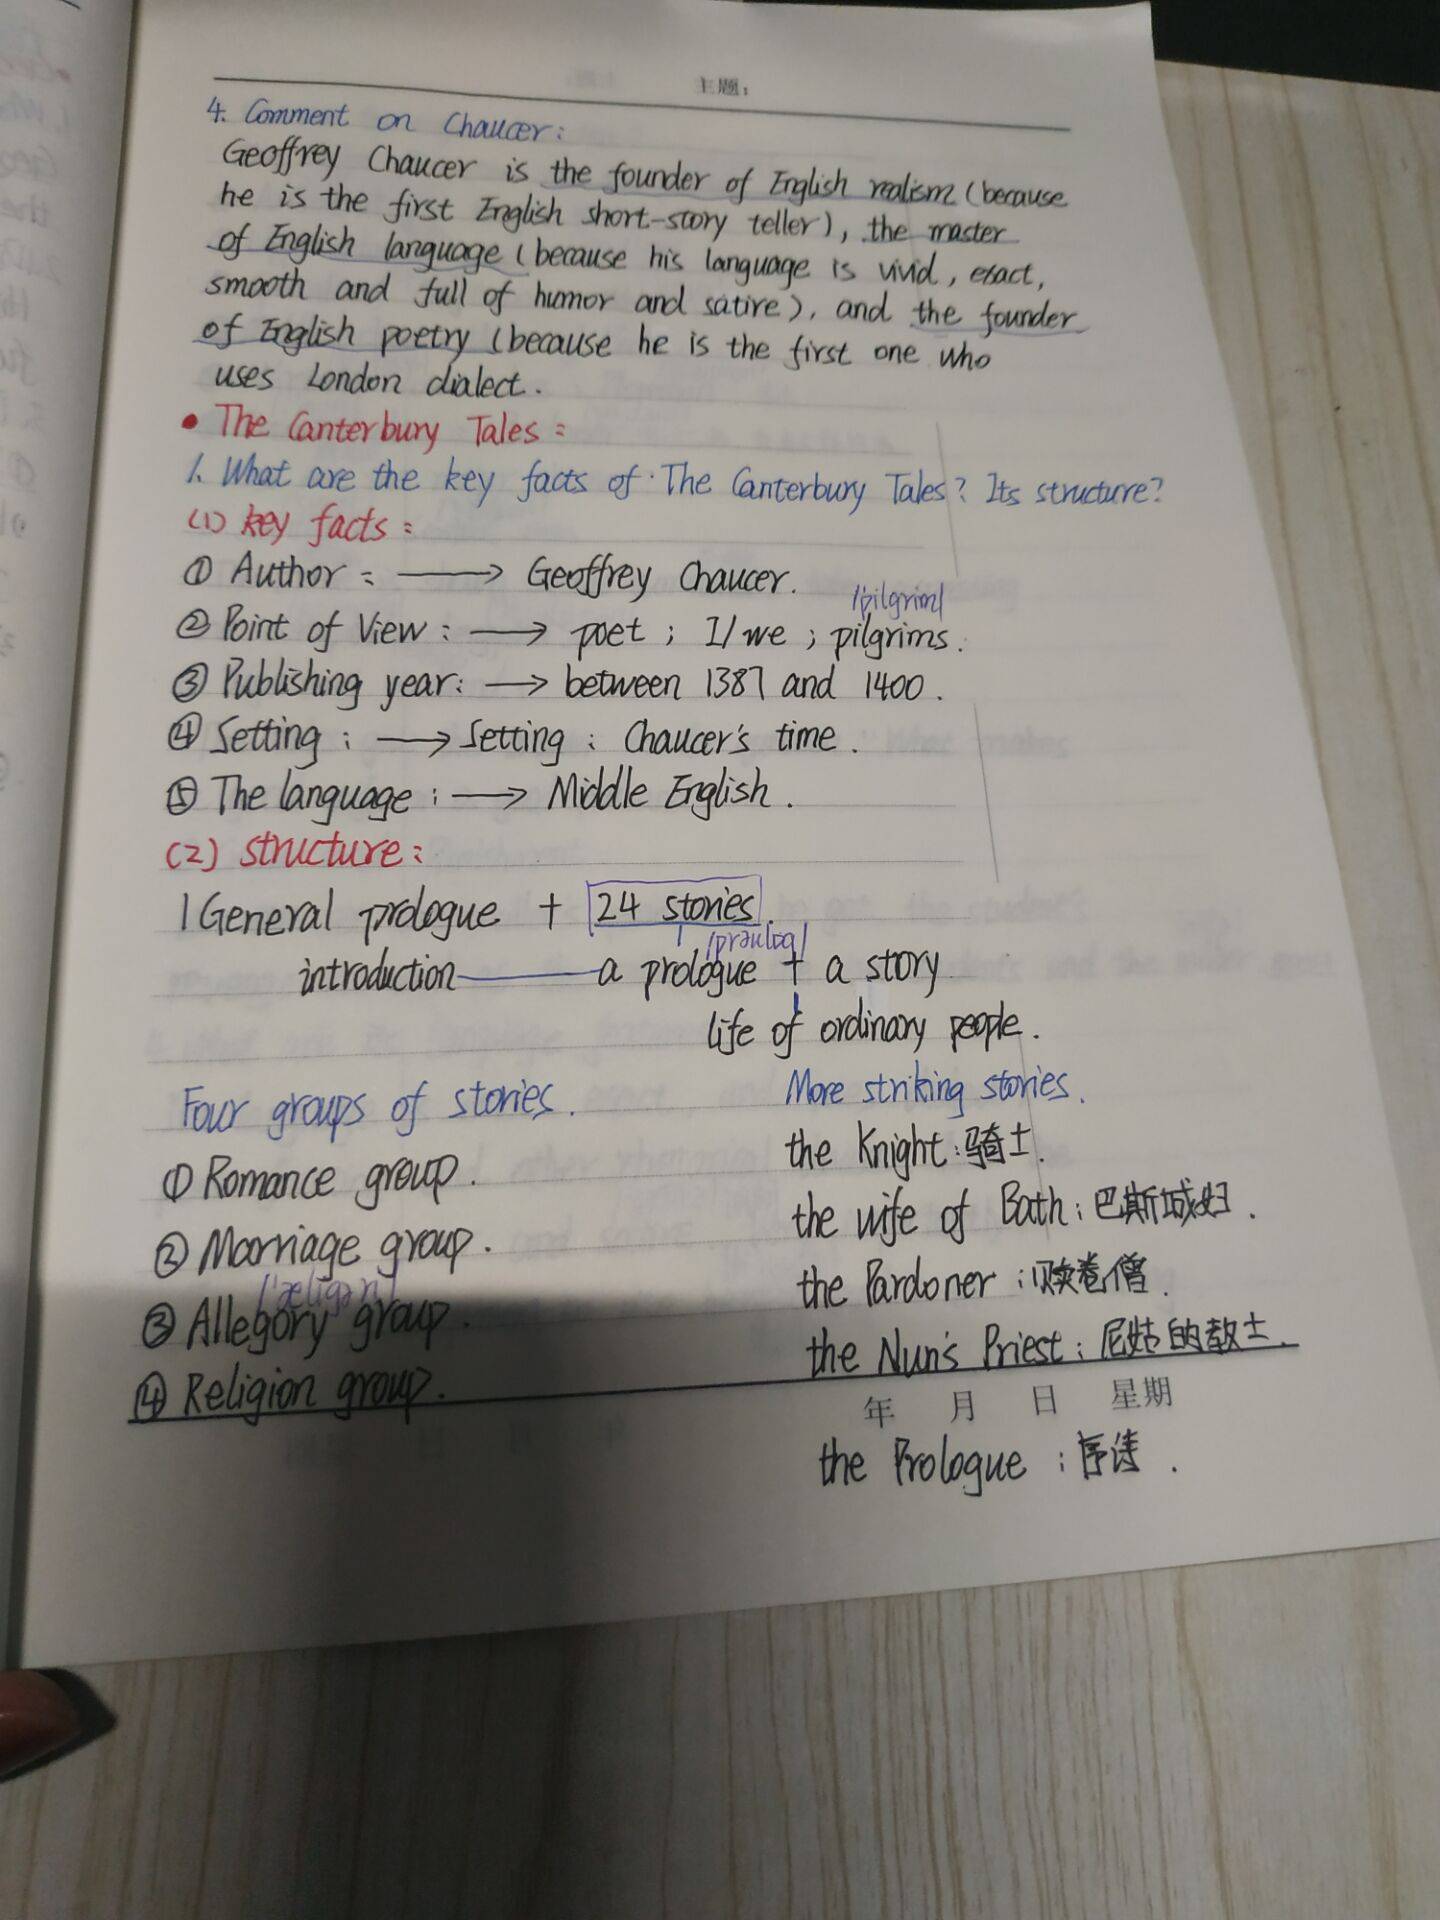 主题:
4. Comment on Chaucer:
Geoffrey Chaucer is the founder of English realism (because
he is the first English short-story teller), the master
of English language (because his language is vivid, exact,
smooth and full of humor and satire), and the founder
of English poetry (because he is the first one who
uses London dialect.
• The Canterbury Tales:
1. What are the key facts of The Canterbury Tales? Its structure?
(1) key facts:
① Author: → Geoffrey Chaucer.
/pilgrim/
② Point of View: → poet; I/we; pilgrims.
③ Publishing year: → between 1387 and 1400.
④ Setting: → Setting: Chaucer's time.
⑤ The language: → Middle English.
(2) structure:
1 General prologue + 24 stories.
/prəulɒg/
introduction — a prologue + a story
life of ordinary people.
Four groups of stories.
① Romance group.
② Marriage group.
/'æligəri/
③ Allegory group.
④ Religion group.
More striking stories.
the Knight: 骑士.
the wife of Bath: 巴斯城妇.
the Pardoner: 赎卷僧.
the Nun's Priest: 尼姑的教士.
年 月 日 星期
the Prologue: 序诗.